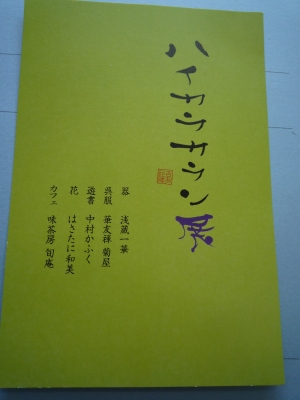 ハイカラサラン展
器 浅蔵一華
呉服 華友禅 菊屋
遊書 中村かふく
花 はさたに和美
カフェ 味茶房 旬庵